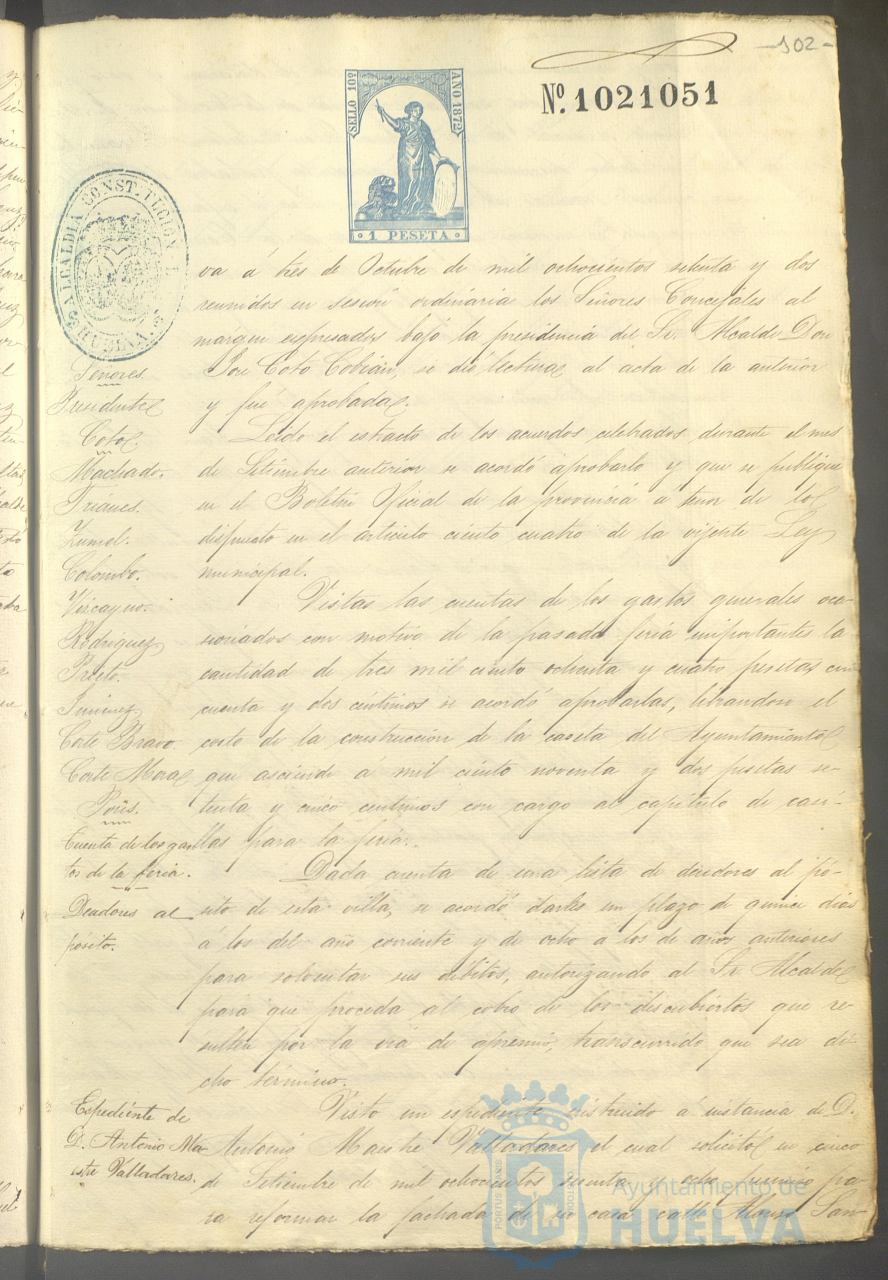 -102-
Nº. 1021051
SELLO 10º AÑO 1872
1 PESETA
ALCALDIA CONSTITUCIONAL
HUELVA
va á tres de Octubre de mil ochocientos setenta y dos
reunidos en sesion ordinaria los Señores Concejales al
margen espresados bajo la presidencia del Sr. Alcalde Don
José Coto Cobian, se dió lectura al acta de la anterior
y fué aprobada.
Leido el estracto de los acuerdos celebrados durante el mes
de Setiembre anterior se acordó aprobarlo y que se publique
en el Boletin Oficial de la provincia a tenor de lo
dispuesto en el articulo ciento cuatro de la vijente Ley
municipal.
Vistas las cuentas de los gastos generales oca-
sionados con motivo de la pasada feria importantes la
cantidad de tres mil ciento ochenta y cuatro pesetas cin
cuenta y dos céntimos se acordó aprobarlas, librandose el
costo de la construcción de la caseta del Ayuntamiento
que asciende á mil ciento noventa y dos pesetas se-
tenta y cinco centimos con cargo al capitulo de casi-
llas para la feria.
Dada cuenta de una lista de deudores al pó-
sito de esta villa, se acordó darles un plazo de quince dias
á los del año corriente y de ocho a los de años anteriores
para solventar sus débitos, autorizando al Sr. Alcalde
para que proceda al cobro de los descubiertos que re-
sulten por la via de apremio, transcurrido que sea di-
cho término.
Visto un espediente instruido á instancia de D.
Antonio Maestre Valladares el cual solicitó en cinco
de Setiembre de mil ochocientos sesenta y ocho permiso pa-
ra reformar la fachada de su casa calle Alonso San-
Señores.
Presidente
Coto.
Machado.
Trianes.
Zumel.
Colombo.
Viscayno.
Rodriguez
Prieto.
Jimenez
Corte Bravo
Corte Mora
Pons.
Cuenta de los gas
tos de la feria.
Deudores al
pósito.
Espediente de
D. Antonio Ma-
estre Valladares.
Ayuntamiento de
HUELVA